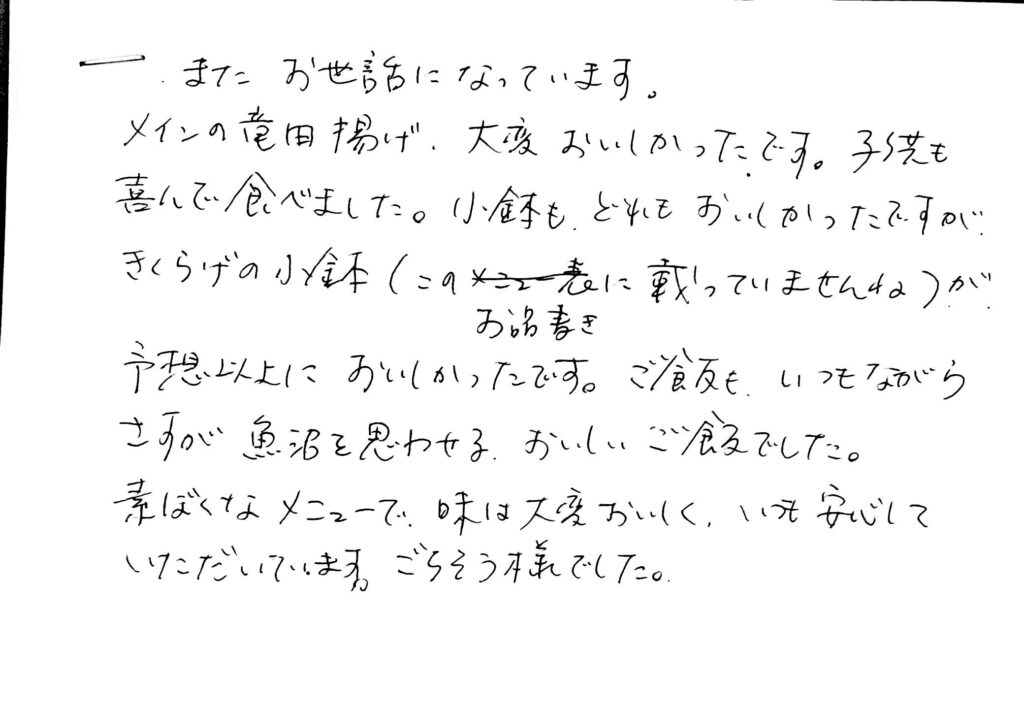 またお世話になっています。
メインの竜田揚げ、大変おいしかったです。子供も
喜んで食べました。小鉢も、どれもおいしかったですが、
きくらげの小鉢(このメニュー表に載っていませんね)が、
お品書き
予想以上においしかったです。ご飯も、いつもながら
さすが魚沼を思わせる、おいしいご飯でした。
素ぼくなメニューで、味は大変おいしく、いつも安心して
いただいています。ごちそう様でした。